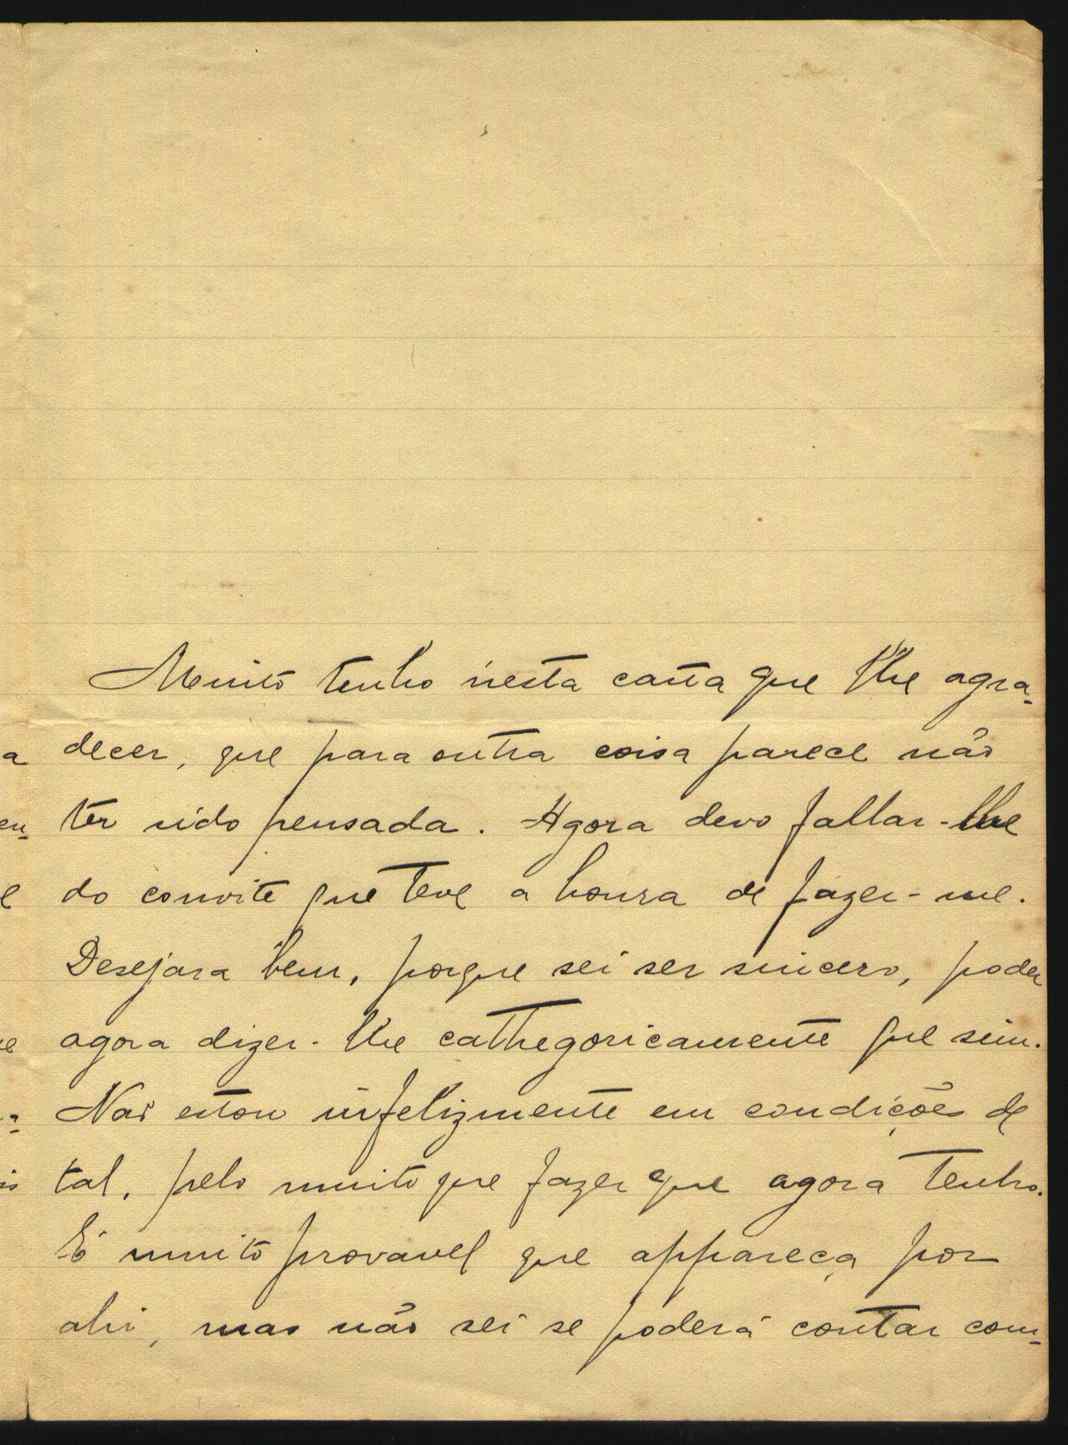 Muito tenho n'esta carta que lhe agra-
decer, que para outra coisa parece não
ter sido pensada. Agora devo fallar-lhe
do convite que teve a honra de fazer-me.
Desejara bem, porque sei ser sincero, poder
agora dizer-lhe cathegoricamente que sim.
Não estou infelizmente em condições de
tal, pelo muito que fazer que agora tenho.
É muito provavel que appareça por
ahi, mas não sei se poderá contar com-